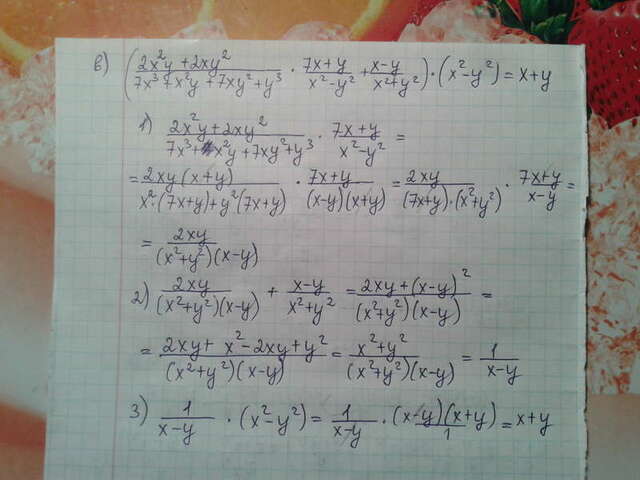 в) ((2x²y + 2xy²)/(7x³ 7x²y + 7xy² + y³) · (7x+y)/(x²−y²) + (x−y)/(x²+y²)) · (x²−y²) = x+y
1) (2x²y + 2xy²)/(7x³ + x²y + 7xy² + y³) · (7x+y)/(x²−y²) =
= (2xy(x+y))/(x²·(7x+y)+y²(7x+y)) · (7x+y)/((x−y)(x+y)) = (2xy)/((7x+y)·(x²+y²)) · (7x+y)/(x−y) =
= (2xy)/((x²+y²)(x−y))
2) (2xy)/((x²+y²)(x−y)) + (x−y)/(x²+y²) = (2xy+(x−y)²)/((x²+y²)(x−y)) =
= (2xy + x² − 2xy + y²)/((x²+y²)(x−y)) = (x²+y²)/((x²+y²)(x−y)) = 1/(x−y)
3) 1/(x−y) · (x²−y²) = 1/(x−y) · ((x−y)(x+y))/1 = x+y